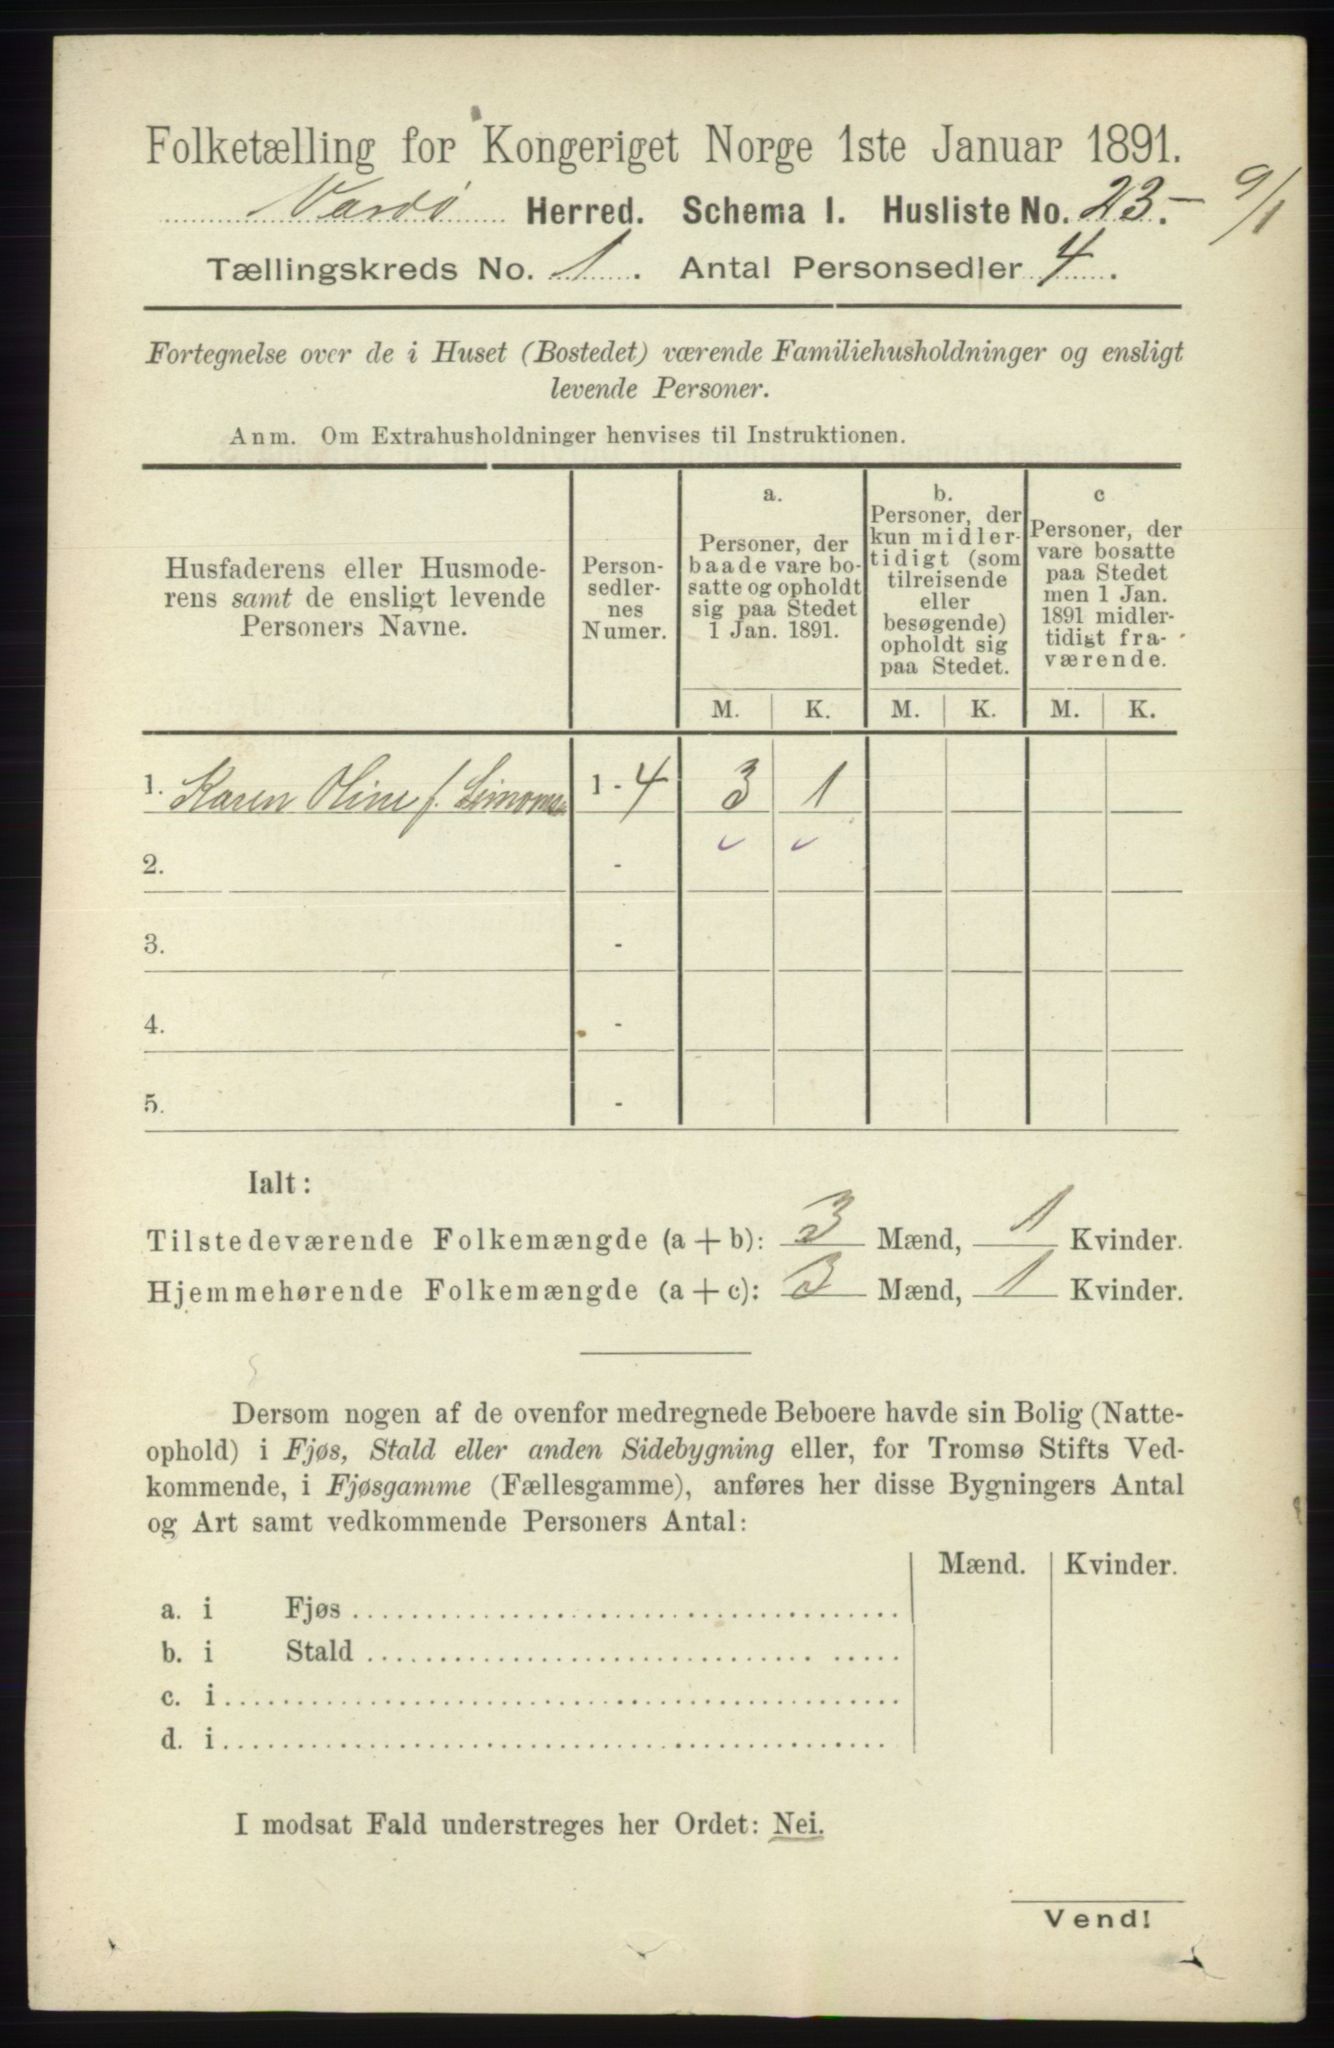 Folketælling for Kongeriget Norge 1ste Januar 1891.
Vardø Herred. Schema I. Husliste No. 23.- 9/1
Tællingskreds No. 1. Antal Personsedler 4.
Fortegnelse over de i Huset (Bostedet) værende Familiehusholdninger og ensligt
levende Personer.
Anm. Om Extrahusholdninger henvises til Instruktionen.
Husfaderens eller Husmode-
rens samt de ensligt levende
Personers Navne.
Person-
sedler-
nes
Numer.
a.
Personer, der
baade vare bo-
satte og opholdt
sig paa Stedet
1 Jan. 1891.
b.
Personer, der
kun midler-
tidigt (som
tilreisende
eller
besøgende)
opholdt sig
paa Stedet.
c
Personer, der
vare bosatte
paa Stedet
men 1 Jan.
1891 midler-
tidigt fra-
værende.
M. K. M. K. M. K.
1. Karen Oline f. Simons 1-4 3 1
2. -
3. -
4. -
5. -
Ialt:
Tilstedeværende Folkemængde (a + b): 3 Mænd, 1 Kvinder.
Hjemmehørende Folkemængde (a + c): 3 Mænd, 1 Kvinder.
Dersom nogen af de ovenfor medregnede Beboere havde sin Bolig (Natte-
ophold) i Fjøs, Stald eller anden Sidebygning eller, for Tromsø Stifts Ved-
kommende, i Fjøsgamme (Fællesgamme), anføres her disse Bygningers Antal
og Art samt vedkommende Personers Antal:
Mænd. Kvinder.
a. i Fjøs
b. i Stald
c. i
d. i
I modsat Fald understreges her Ordet: Nei.
Vend!